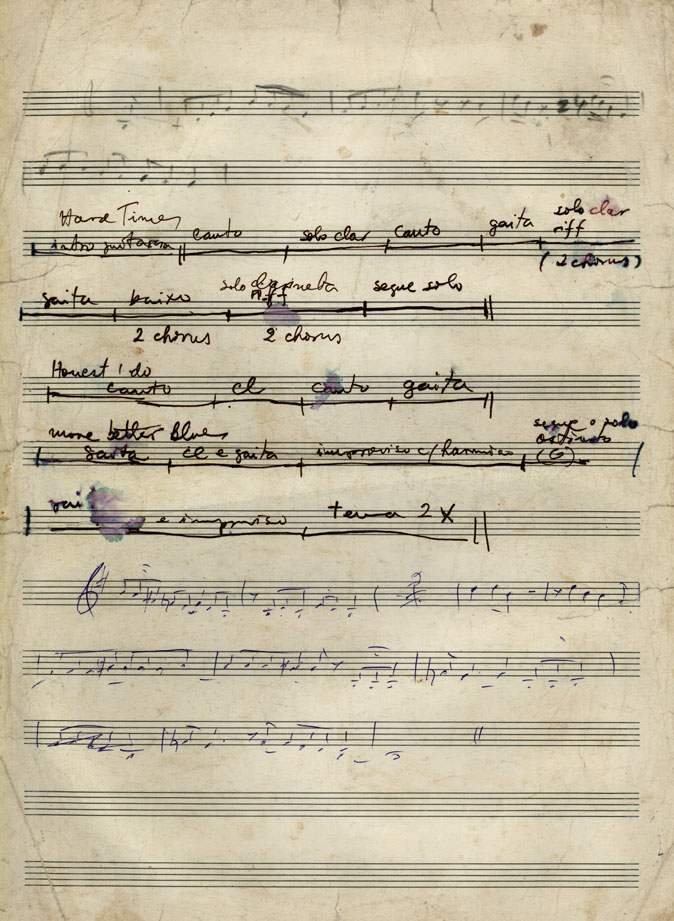 Hard Times
intro guitarra canto solo clar canto gaita solo clar riff
(2 chorus)
gaita baixo solo clarineta riff segue solo
2 chorus 2 chorus
Honest I do
canto cl canto gaita
more better Blues
gaita cl e gaita improviso c/ harmico segue o pedal ostinato (G)
e improviso tema 2X